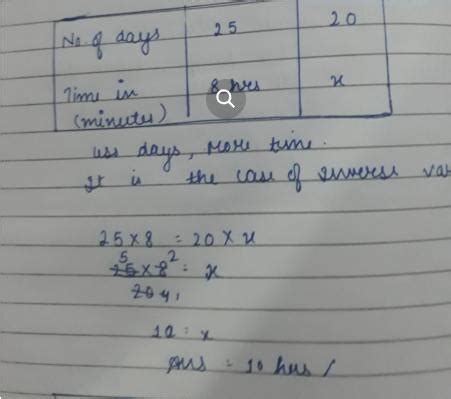 No. of days 25 20
Time in (minutes) 8 hrs x
less days, more time.
It is the case of inverse var
25 × 8 = 20 × x
25 5 × 8 2 = x
20 4 1
10 = x
Ans = 10 hrs /